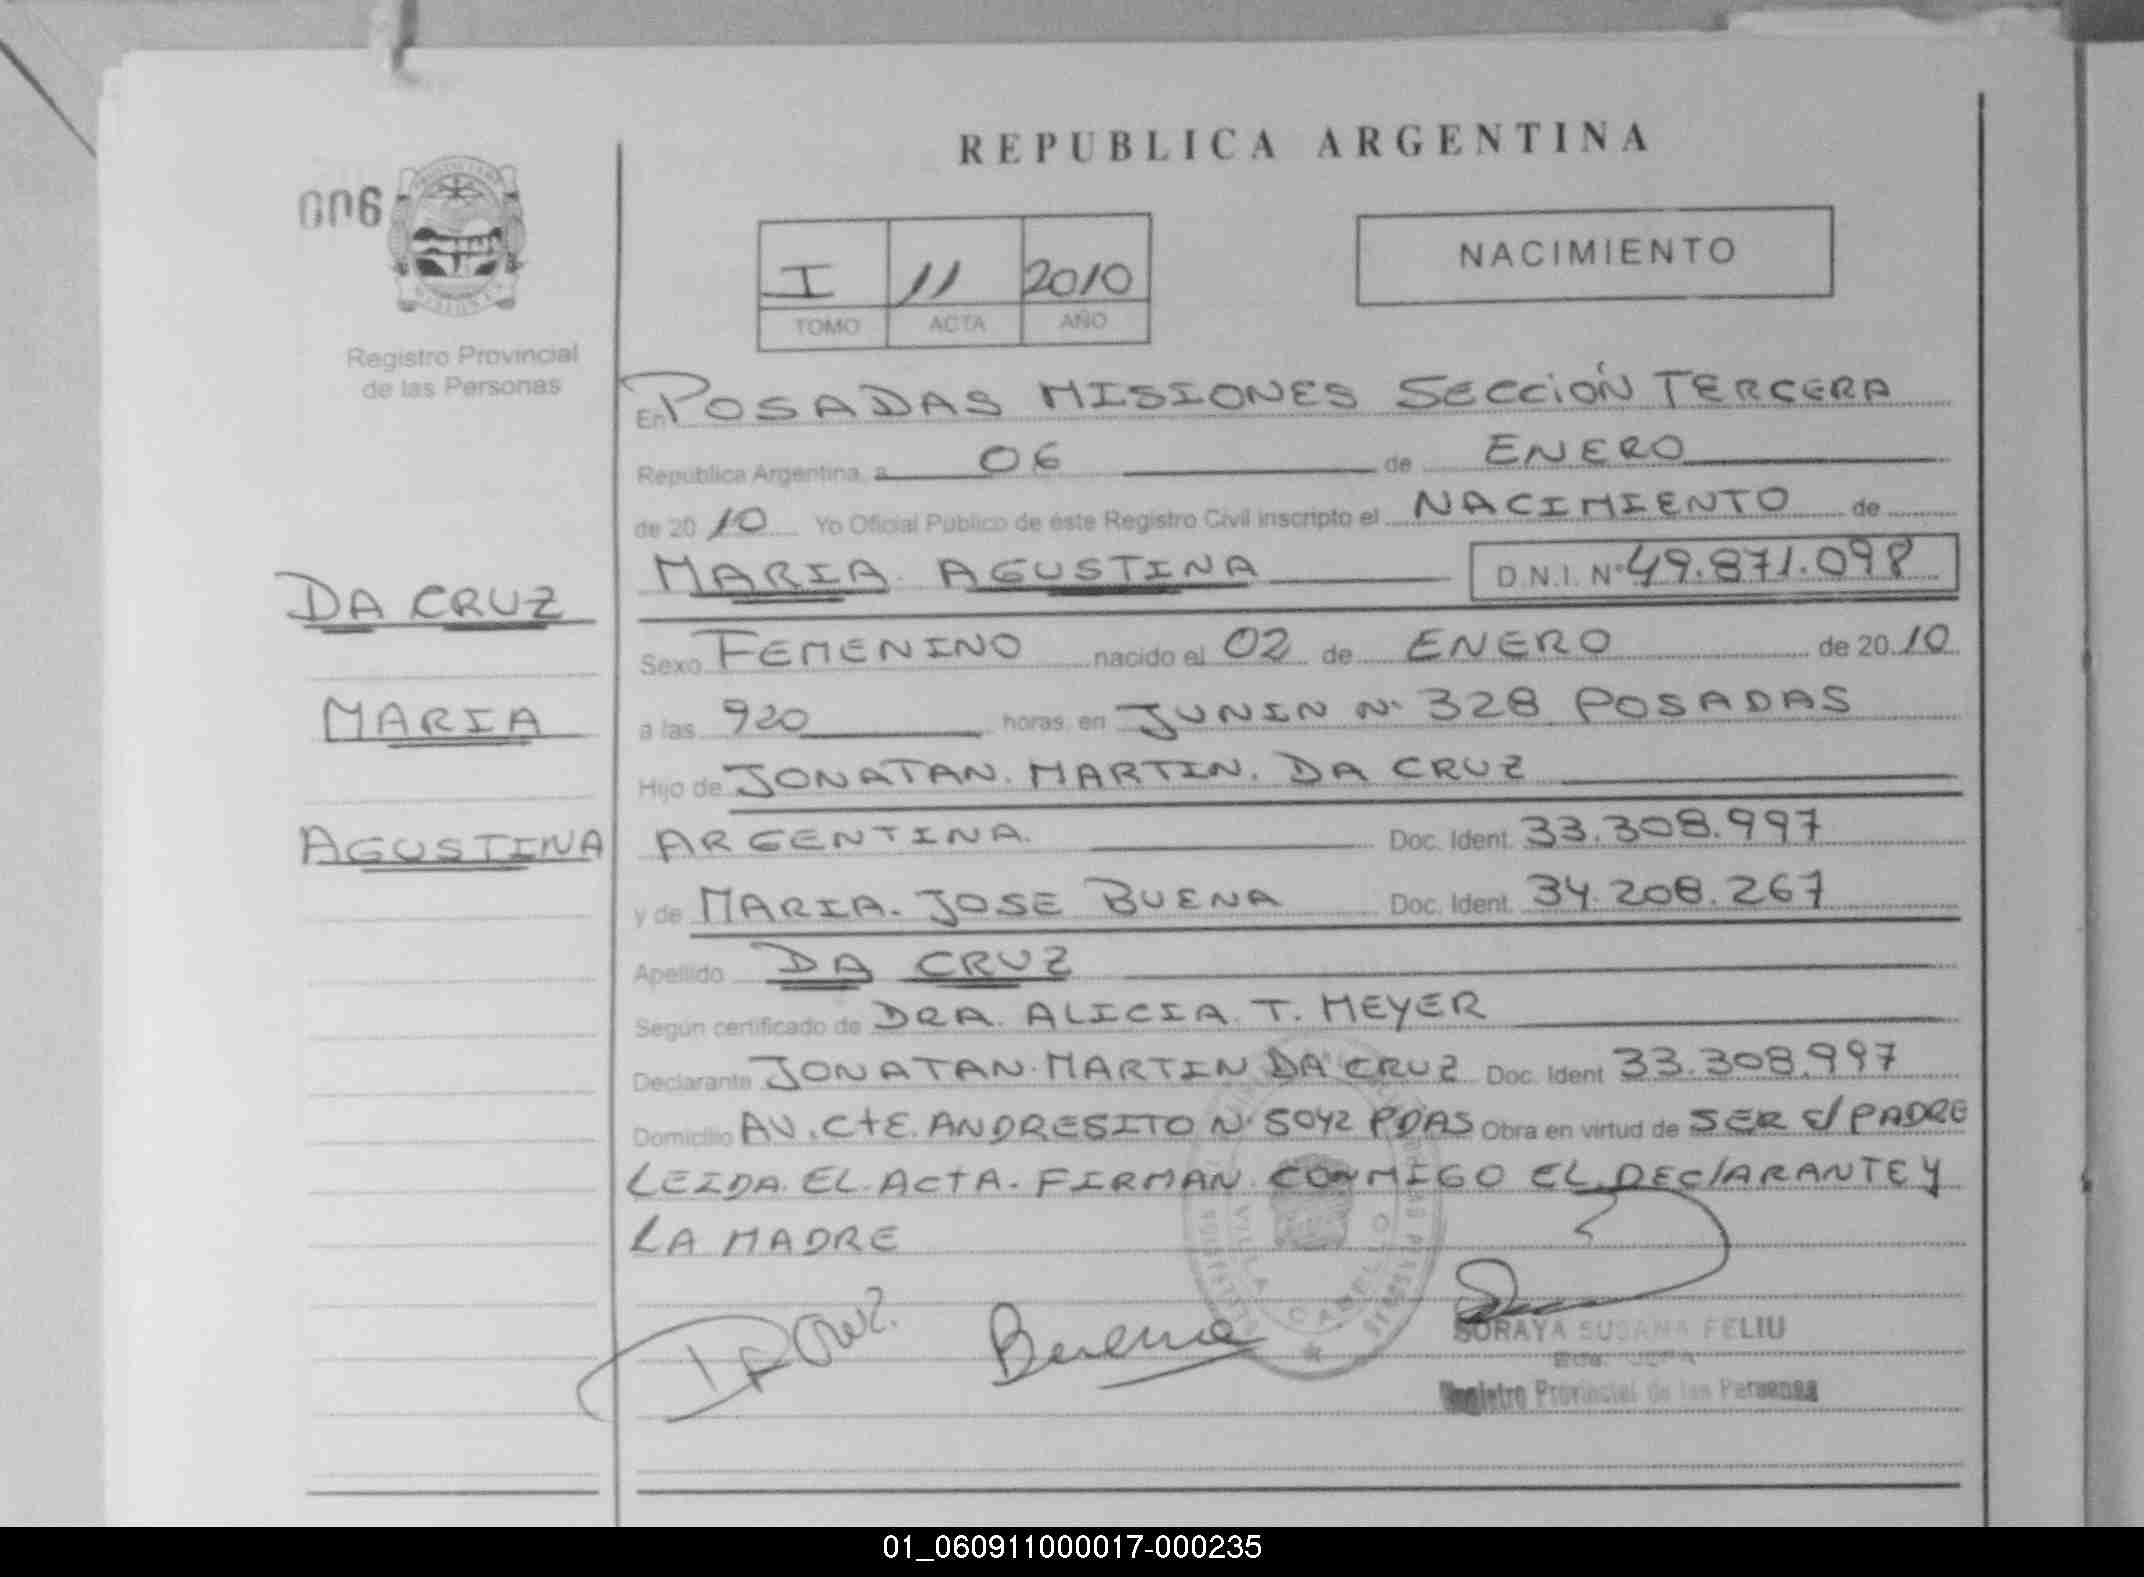 REPUBLICA ARGENTINA
006
NACIMIENTO
I 11 2010
TOMO ACTA AÑO
Registro Provincial
de las Personas
En POSADAS MISIONES SECCIÓN TERCERA
República Argentina, a 06 de ENERO
de 2010 Yo Oficial Público de éste Registro Civil inscripto el NACIMIENTO de
MARIA AGUSTINA D.N.I. Nº 49.871.098
DA CRUZ
MARIA
AGUSTINA
Sexo FEMENINO nacido el 02 de ENERO de 2010
a las 920 horas, en JUNIN Nº 328 POSADAS
Hijo de JONATAN. MARTIN. DA CRUZ
ARGENTINA. Doc. Ident. 33.308.997
y de MARIA. JOSE BUENA Doc. Ident. 34.208.267
Apellido DA CRUZ
Según certificado de DRA. ALICIA. T. MEYER
Declarante JONATAN. MARTIN DA CRUZ Doc. Ident 33.308.997
Domicilio AV. CtE. ANDRESITO Nº 5042 PDAS Obra en virtud de SER E/ PADRE
LEIDA. EL. ACTA. FIRMAN. CONMIGO EL DEClARANTE Y
LA MADRE
Buena
VILLA CABELLO
SORAYA SUSANA FELIU
Registro Provincial de las Personas
01_060911000017-000235